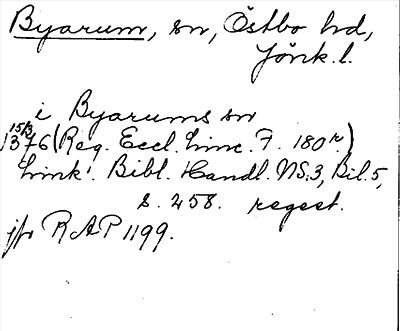 Byarum, sn, Östbo hd,
Jönk. l.
i Byarums sn
15/3
1376 (Reg. Eccl. Linc. F. 180r.)
Link. Bibl. Handl. NS.3, Bil. 5,
s. 258. regest.
jfr RAP 1199.